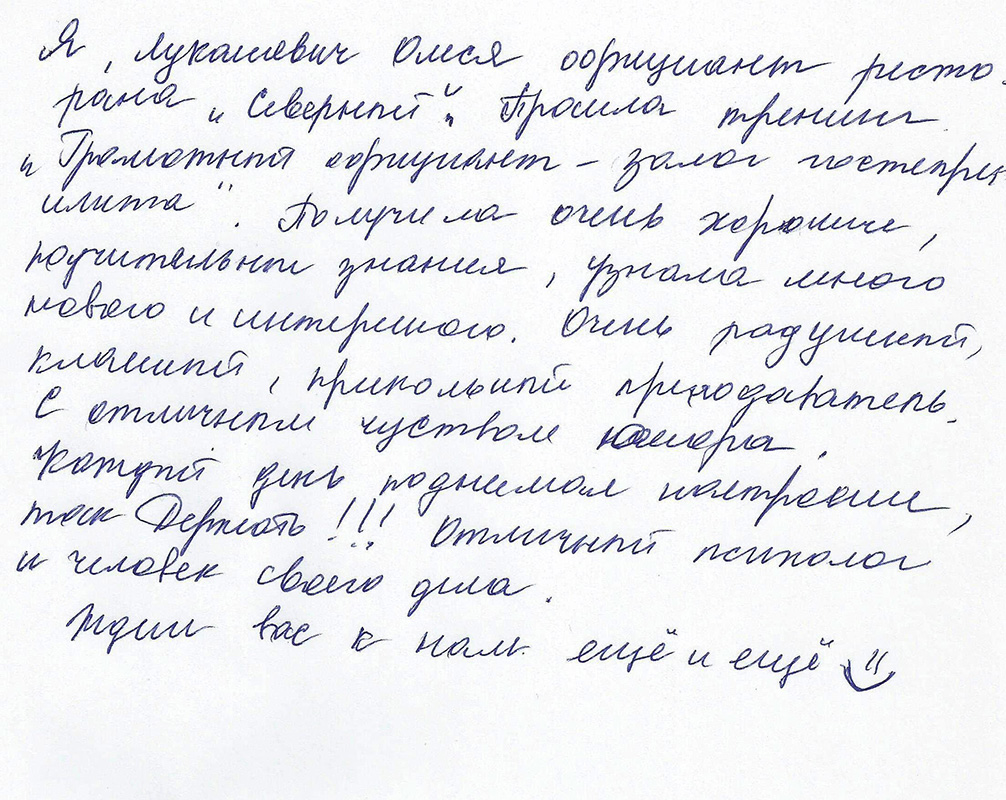 Я, Лукашевич Олеся официант ресто-
рана „Северный“. Прошла тренинг
„Грамотный официант – залог гостепри-
имства“. Получила очень хорошие,
поучительные знания, узнала много
нового и интересного. Очень радушный,
классный, прикольный преподаватель.
С отличным чуством юмора.
Каждый день поднимал настроение,
так Держать!!! Отличный психолог
и человек своего дела.
Ждём вас к нам ещё и ещё